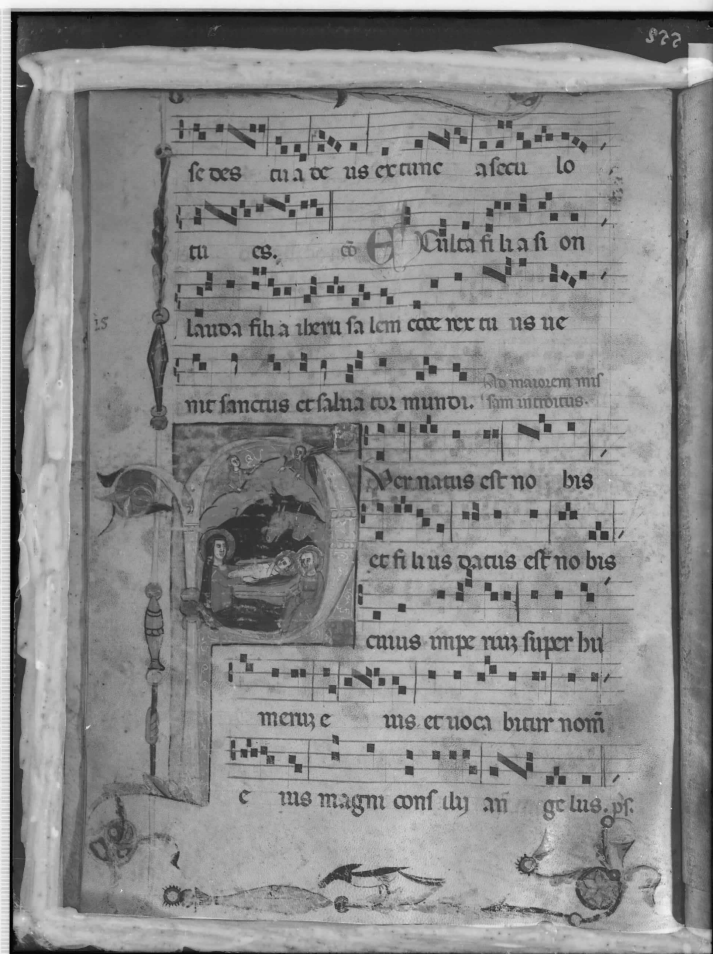 se des tu a de us ex tunc a secu lo
tu es. cō E Culta fi li a si on
lauda fili a iheru sa lem ecce rex tu us ue
15
nit sanctus et salua tor mundi. Ad maiorem mis
sam introitus.
Puer natus est no bis
et fi li us datus est no bis
cuius impe riuʒ super hu
meruʒ e ius et uoca bitur nom̄
e ius magni consilij an ge lus. ps.